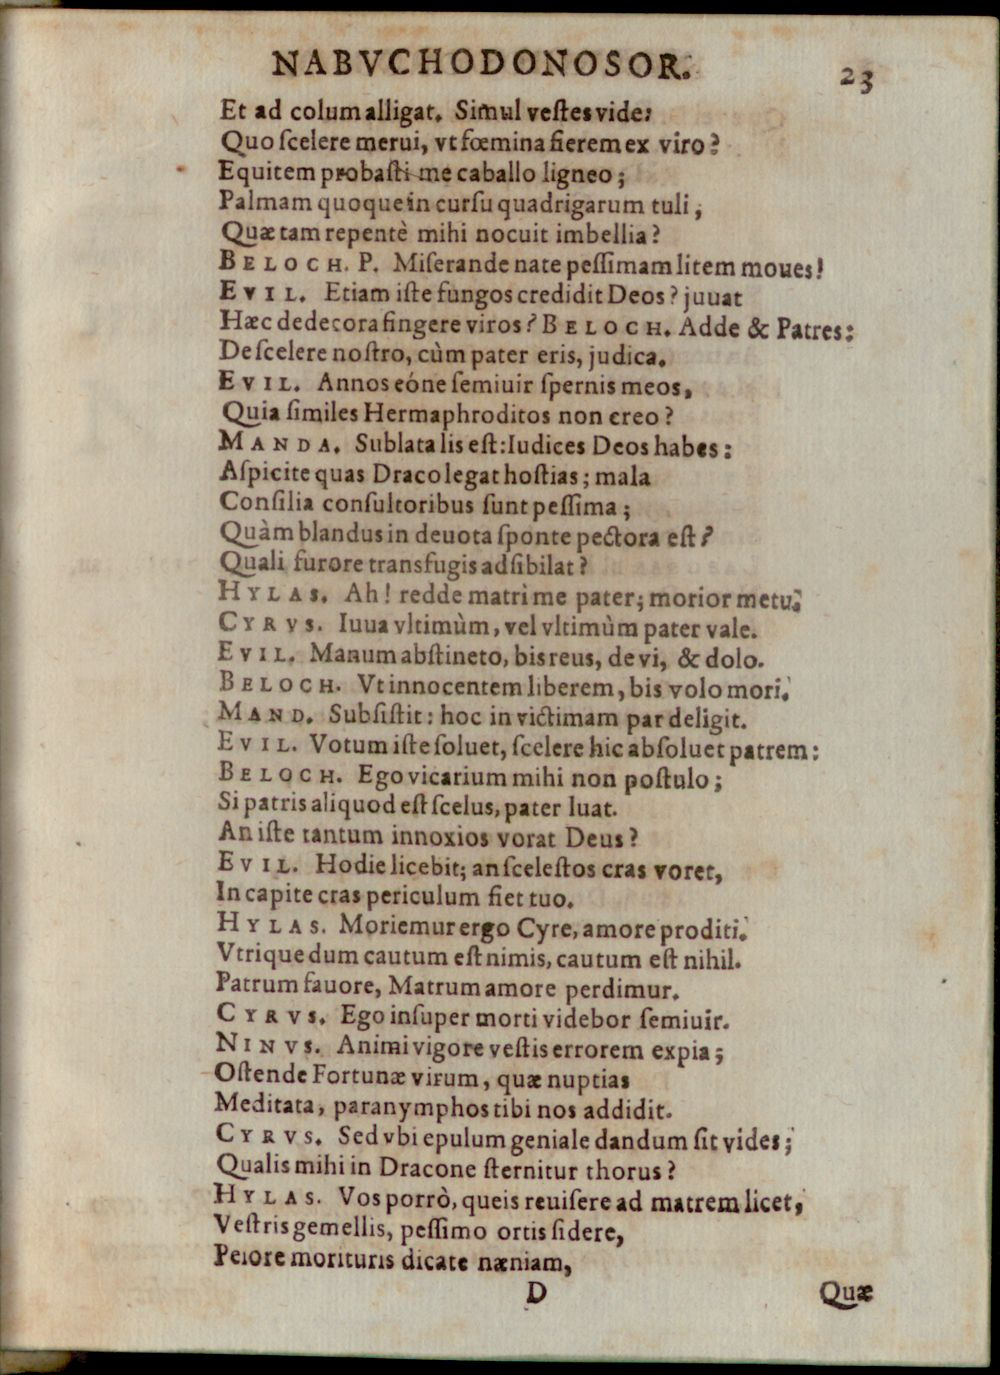 NABVCHODONOSOR. 23
Et ad colum alligat. Simul vestes vide:
Quo scelere merui, vt fœmina fierem ex viro?
Equitem probasti me caballo ligneo;
Palmam quoque in cursu quadrigarum tuli;
Quæ tam repentè mihi nocuit imbellia?
BELOCH. P. Miserande nate pessimam litem moues!
EVIL. Etiam iste fungos credidit Deos? juuat
Hæc dedecora fingere viros? BELOCH. Adde & Patres:
De scelere nostro, cùm pater eris, judica.
EVIL. Annos eóne semiuir spernis meos,
Quia similes Hermaphroditos non creo?
MANDA. Sublata lis est: Iudices Deos habes:
Aspicite quas Draco legat hostias; mala
Consilia consultoribus sunt pessima;
Quàm blandus in deuota sponte pectora est?
Quali furore transfugis adsibilat?
HYLAS. Ah! redde matri me pater; morior metu.
CYRVS. Iuua vltimùm, vel vltimùm pater vale.
EVIL. Manum abstineto, bis reus, de vi, & dolo.
BELOCH. Vt innocentem liberem, bis volo mori.
MAND. Subsistit: hoc in victimam par deligit.
EVIL. Votum iste soluet, scelere hic absoluet patrem:
BELOCH. Ego vicarium mihi non postulo;
Si patris aliquod est scelus, pater luat.
An iste tantum innoxios vorat Deus?
EVIL. Hodie licebit; an scelestos cras voret,
In capite cras periculum fiet tuo.
HYLAS. Moriemur ergo Cyre, amore proditi.
Vtrique dum cautum est nimis, cautum est nihil.
Patrum fauore, Matrum amore perdimur.
CYRVS. Ego insuper morti videbor semiuir.
NINVS. Animi vigore vestis errorem expia;
Ostende Fortunæ virum, quæ nuptias
Meditata, paranymphos tibi nos addidit.
CYRVS. Sed vbi epulum geniale dandum sit vides;
Qualis mihi in Dracone sternitur thorus?
HYLAS. Vos porrò, queis reuisere ad matrem licet,
Vestris gemellis, pessimo ortis sidere,
Peiore morituris dicate næniam,
D Quæ